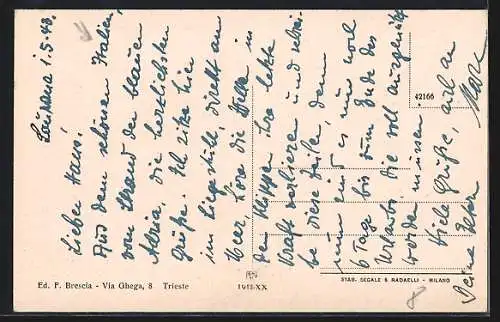 Laurana 1.5.43.
Lieber Hans!
Aus dem schönen Italien,
vom Strand der blauen
Adria, die herzlichsten
Grüße. Ich sitze hier
im Liegestuhl, direkt am
Meer, höre die Wellen in
den Klippen ihre letzte
Kraft verlieren und schrei-
be diese Zeilen, denn
nun sind es nur noch
6 Tage bis zum Ende des
Urlaubs, die voll ausgenützt
werden müssen.
Viele Grüße, auch an
Deine
42166
Ed. F. Brescia - Via Ghega, 8 Trieste
1942-XX
STAB. SEGALE & RADAELLI - MILANO